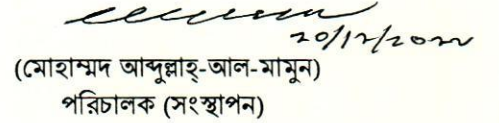 ২০/১২/২০২২
(মোহাম্মদ আব্দুল্লাহ্-আল-মামুন)
পরিচালক (সংস্থাপন)